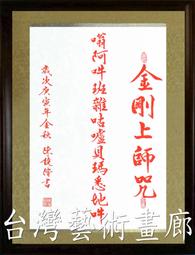 金剛上師咒
嗡阿吽班雜咕嚧貝瑪悉地吽
歲次庚寅年金秋 陳書
台灣藝術畫廊